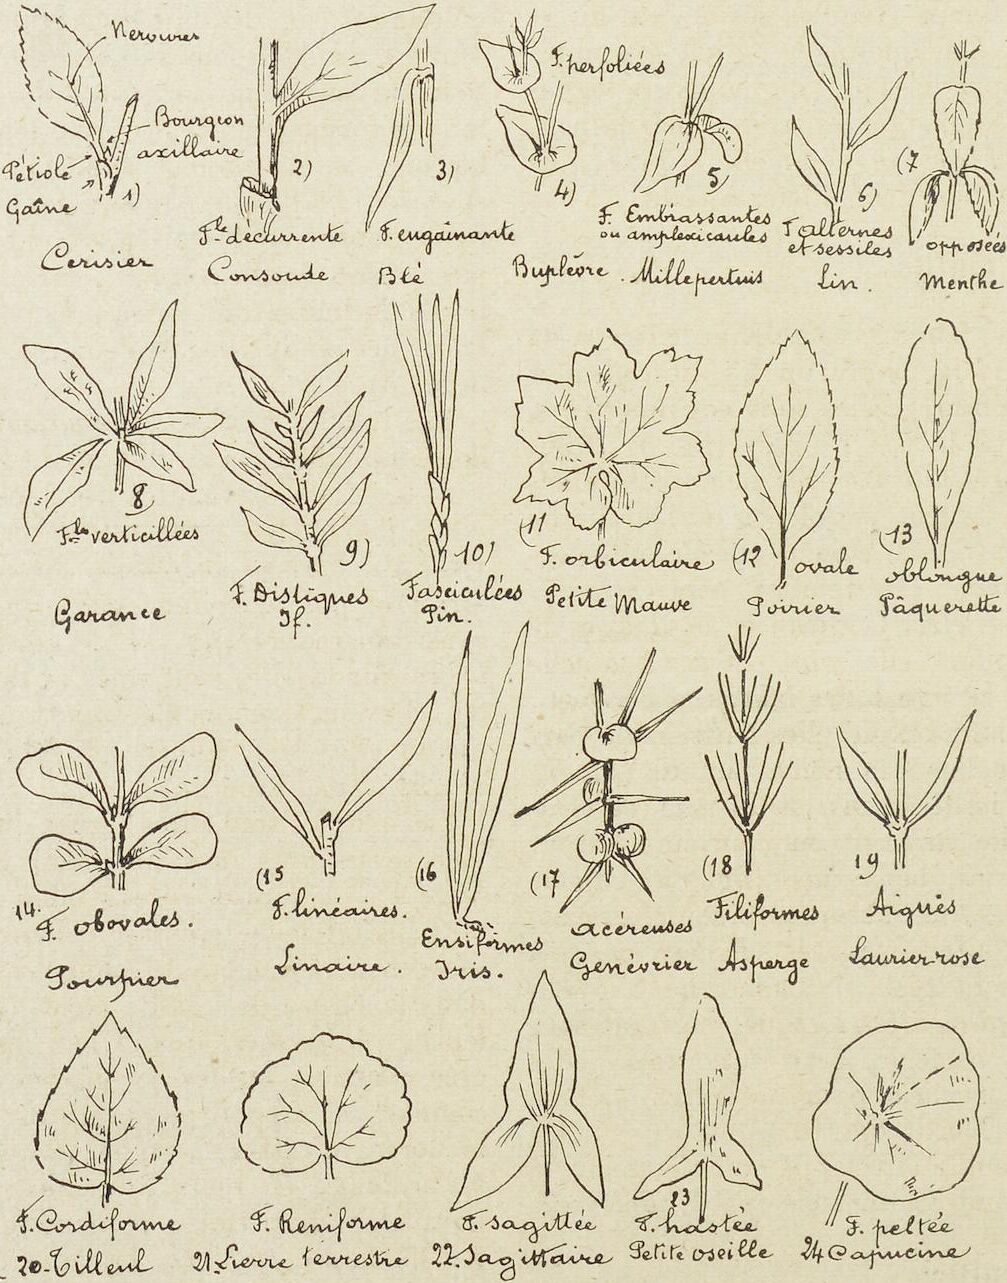 Nervures
Bourgeon
axillaire
Pétiole
Gaîne
1)
Cerisier
2)
Fle décurrente
Consoude
3)
F. engaînante
Blé
F. perfoliées
4)
Buplèvre
5)
F. Embrassantes
ou amplexicaules
Millepertuis
6)
F alternes
et sessiles
Lin.
(7
opposées
Menthe
8
Fles verticillées
Garance
9)
F. Distiques
If.
10)
Fasciculées
Pin.
(11
F. orbiculaire
Petite Mauve
(12
ovale
Poirier
(13
oblongue
Pâquerette
14.
F. obovales.
Pourpier
(15
F. linéaires.
Linaire.
(16
Ensiformes
Iris.
(17
acéreuses
Genévrier
(18
Filiformes
Asperge
19
Aiguës
Laurier-rose
F. Cordiforme
20-Tilleul
F. Reniforme
21-Lierre terrestre
F. sagittée
22. Sagittaire
23
F. hastée
Petite oseille
F. peltée
24 Capucine